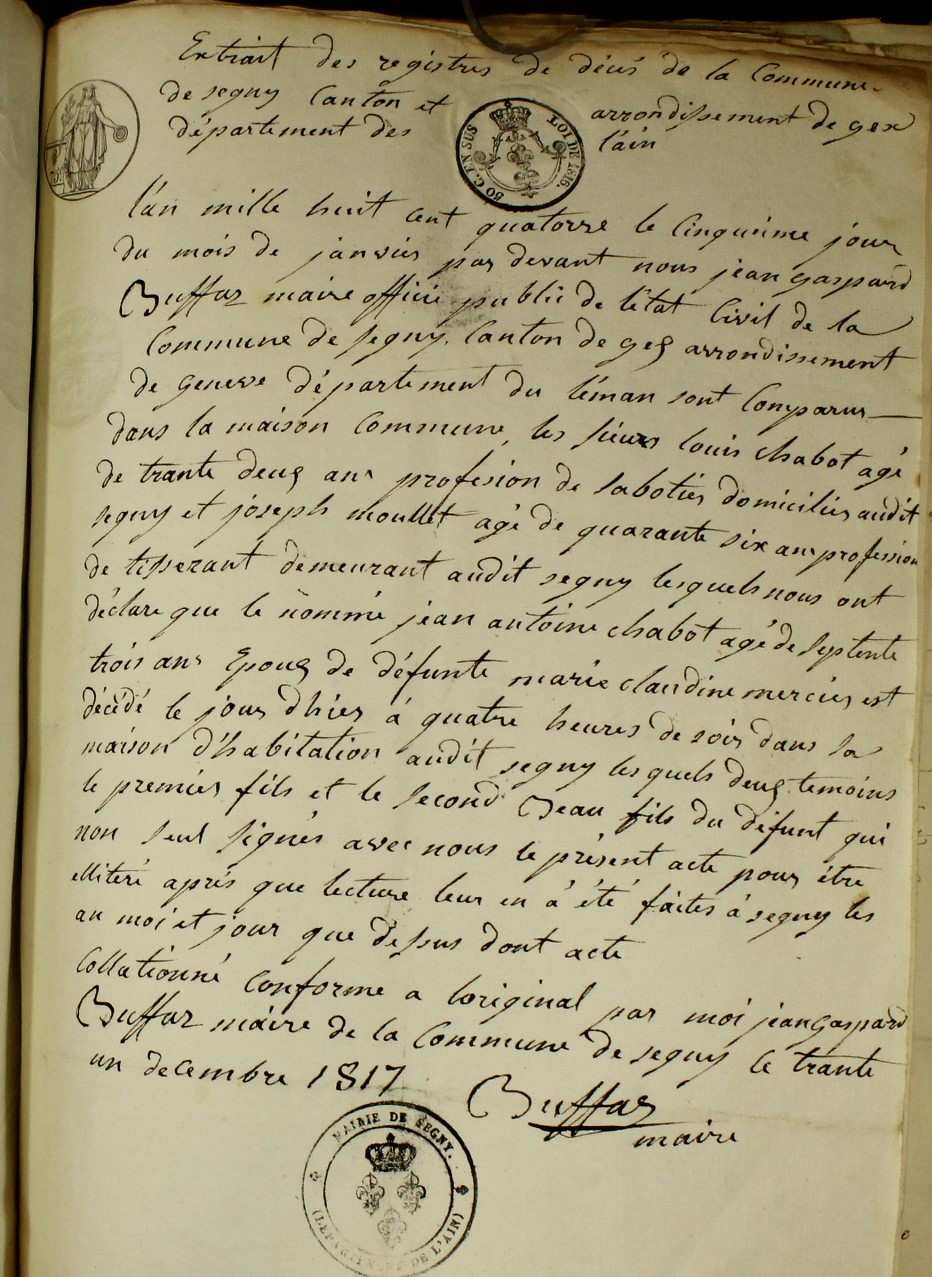 Extrait des registres de décés de la Commune
de segny Canton et arrondissement de gex
département des l'ain
80 C. EN SUS LOI DE 1816.
l'an mille huit cent quatorze le Cinquiéme jour
du mois de janvier par devant nous jean gaspard
Buffaz maire officié public de létat Civil de la
Commune de segny Canton de gex arrondissement
de geneve département du léman sont Comparus
dans la maison Commune, les sieurs louis chabot agé
de trante deux ans profesion de sabotier domiciliés audit
segny et joseph moullet agé de quarante six ans profession
de tisserant demeurant audit segny lesquels nous ont
déclare que le nommé jean antoine chabot agé de septente
trois ans Epoux de défunte marie claudine mercier est
décédé le jour dhier á quatre heures de soir dans sa
maison d'habitation audit segny lesquels deux temoins
le premier fils et le second Beau fils du défunt qui
non seul signés avec nous le présent acte pour étre
elliteré aprés que lecture leur en á été faites á segny les
an moi et jour que dessus dont acte
Collationné Conforme a loriginal par moi jean Gaspard
Buffaz maire de la Commune de segny le trante
un decembre 1817
Buffaz
maire
MAIRIE DE SEGNY.
(DEPARTEMENT DE L'AIN)